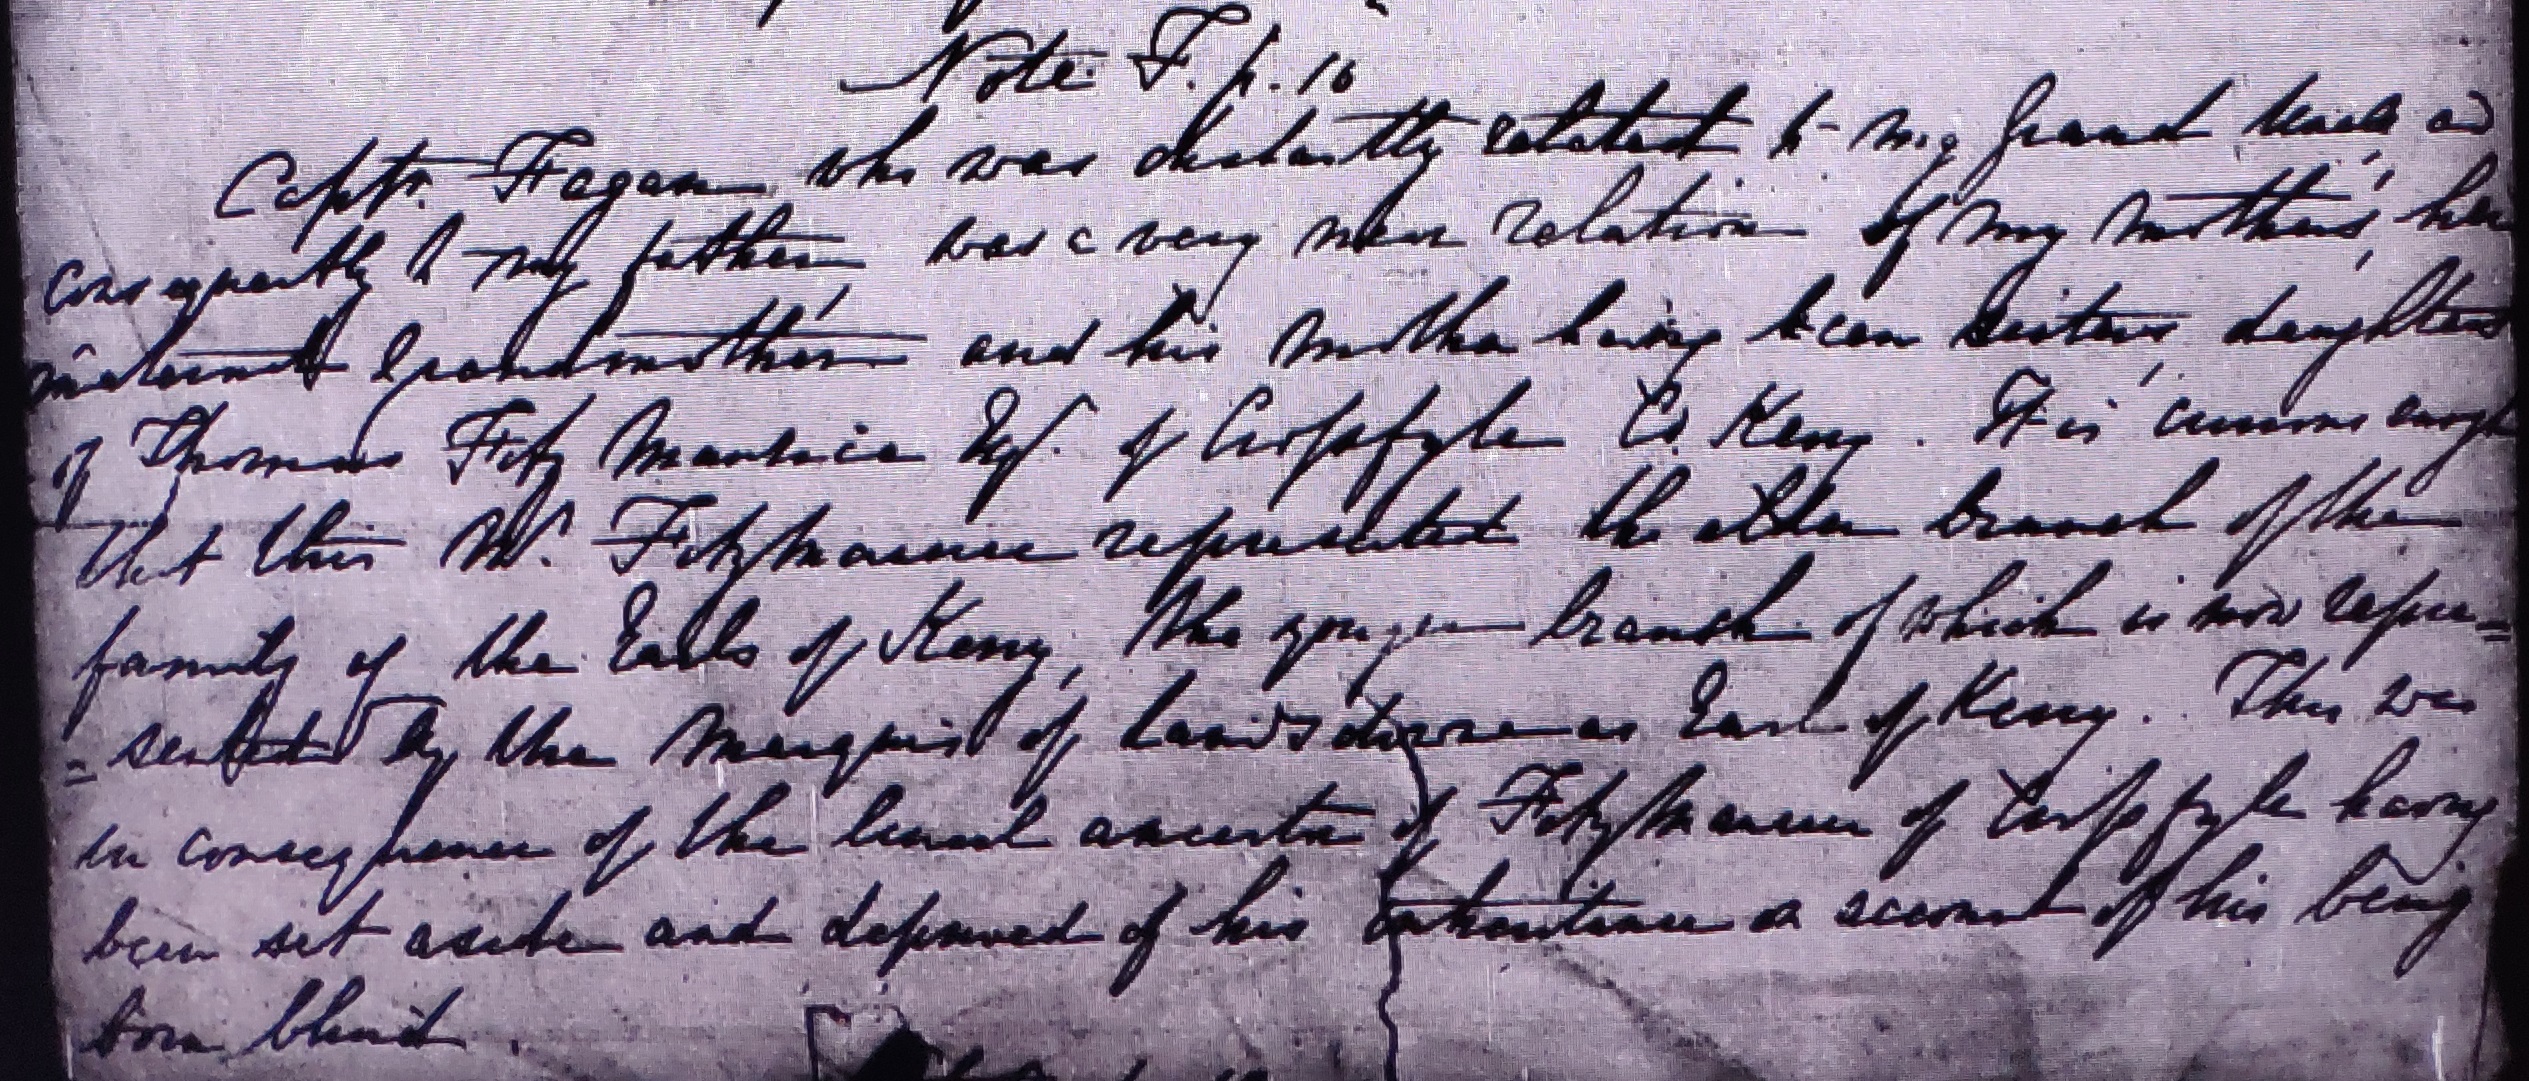 Note F. p. 16
Captn. Fagan who was distantly related to my Grand Uncle and
consequently to my father was a very near relation of my mother's, her
maternal Grandmother and his mother having been sisters, daughters
of Thomas Fitz Maurice Esqr. of Cosfoyle Co. Kerry. It is curious enough
that this Mr. Fitzmaurice represented the elder branch of the
family of the Earls of Kerry, the younger branch of which is now repre=
=sented by the Marquis of Landsdowne as Earl of Kerry. This was
in consequence of the lineal ancestor of FitzMaurice of having
been set aside and deprived of his inheritance on account of his being
born blind.